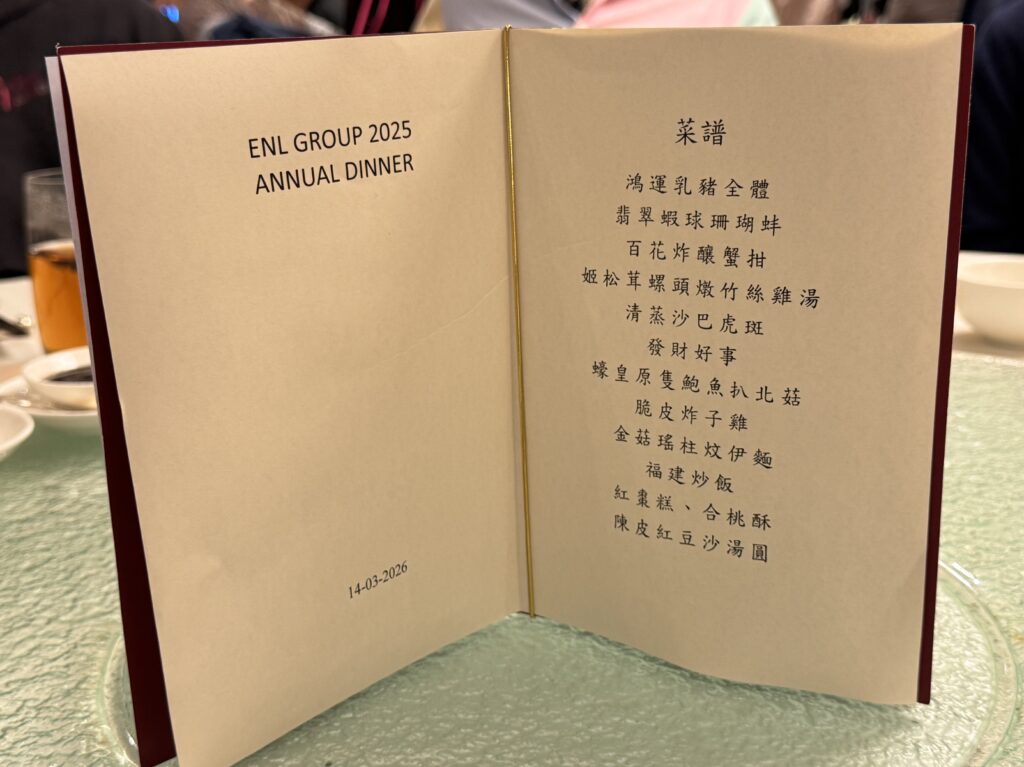 ENL GROUP 2025
ANNUAL DINNER
14-03-2026
菜譜
鴻運乳豬全體
翡翠蝦球珊瑚蚌
百花炸釀蟹拑
姬松茸螺頭燉竹絲雞湯
清蒸沙巴虎斑
發財好事
蠔皇原隻鮑魚扒北菇
脆皮炸子雞
金菇瑤柱炆伊麵
福建炒飯
紅棗糕、合桃酥
陳皮紅豆沙湯圓